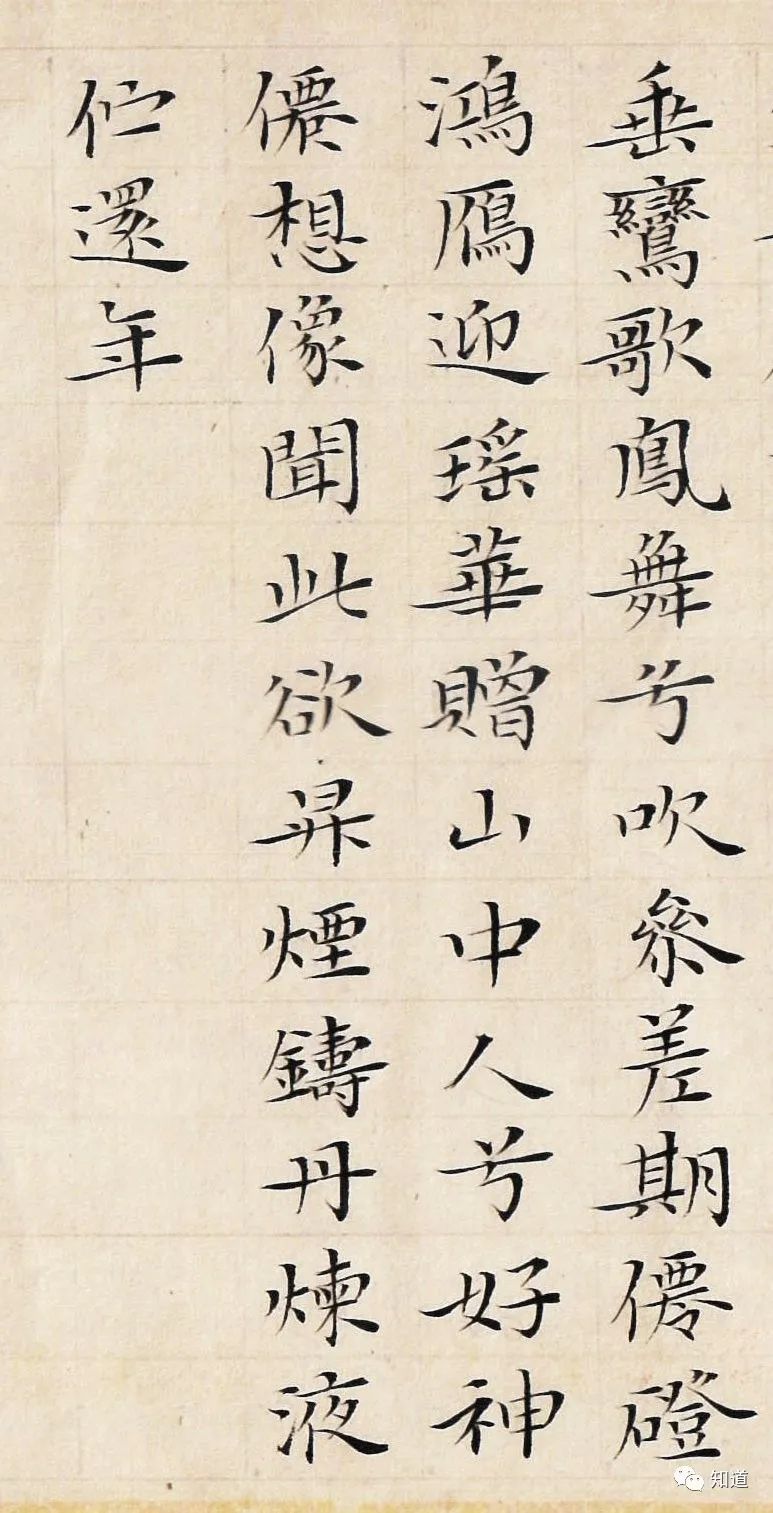 垂鸞歌鳳舞兮吹參差期僊磴
鴻鴈迎瑤華贈山中人兮好神
僊想像聞此欲昇煙鑄丹煉液
伫還年
知道